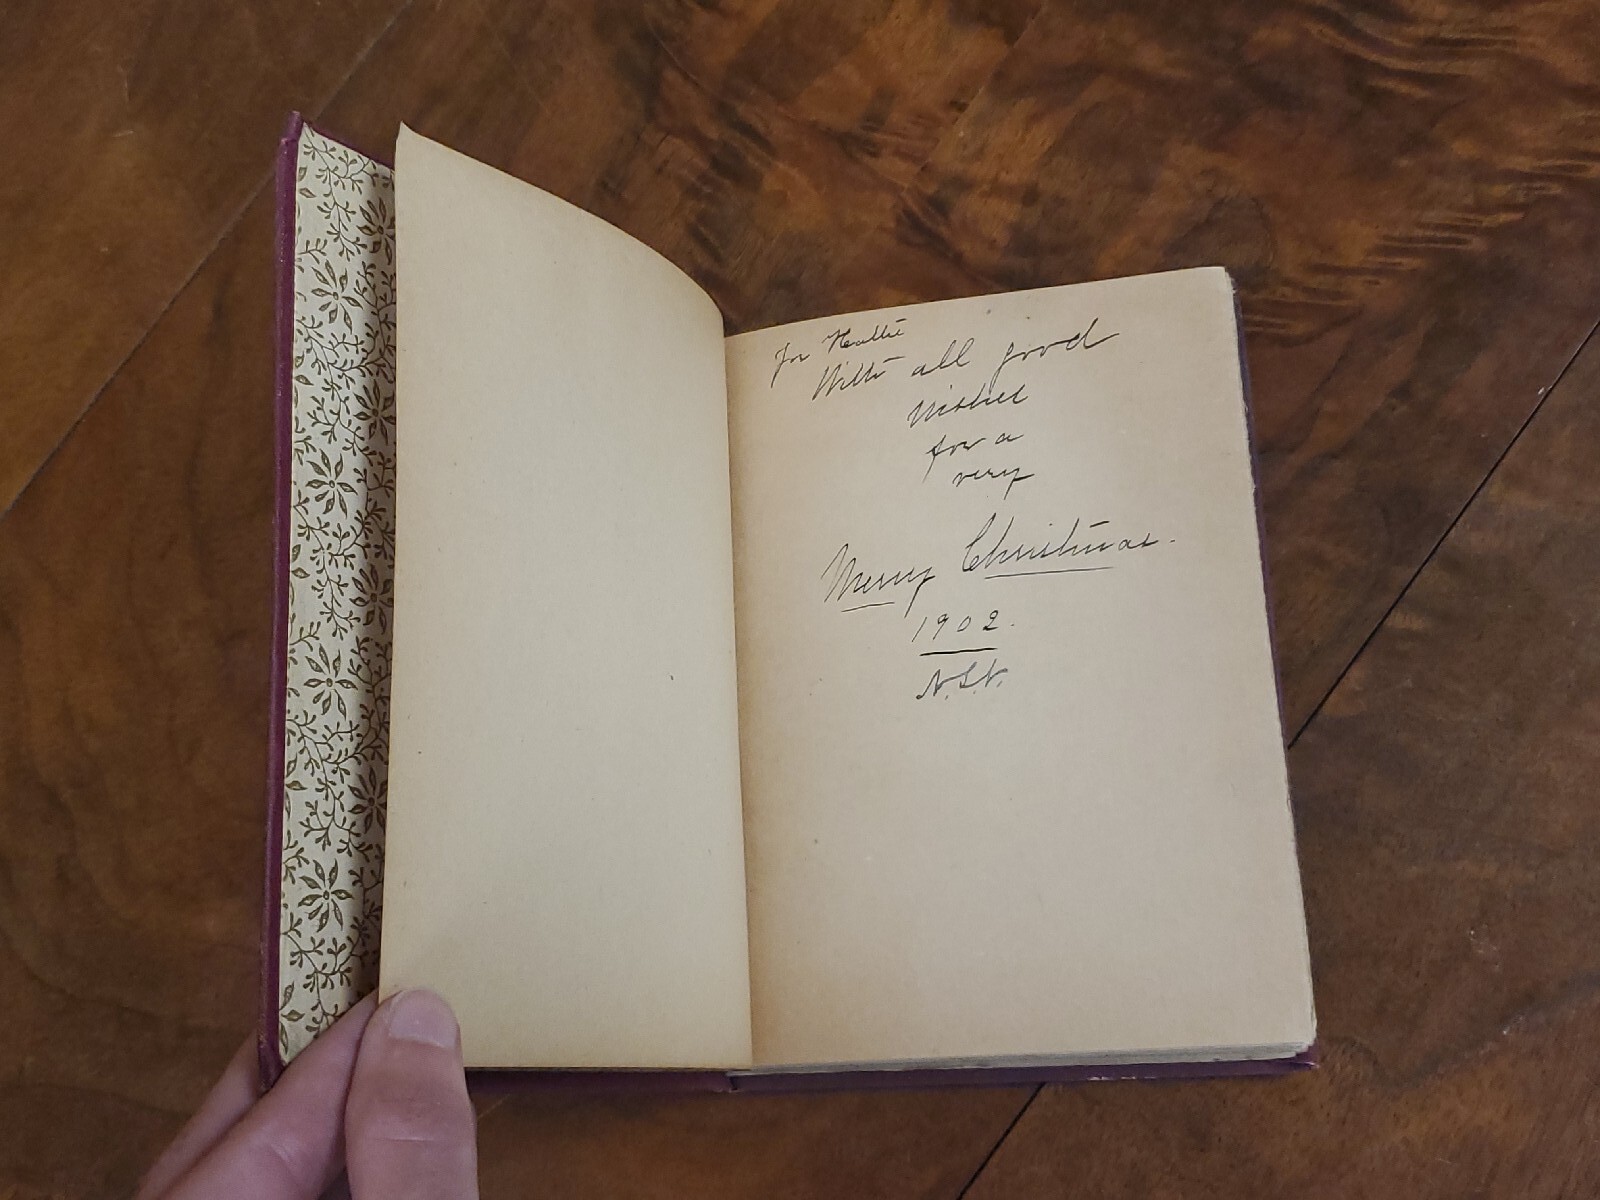 For Hattie
With all good
wishes
for a
very
Merry Christmas.
1902.